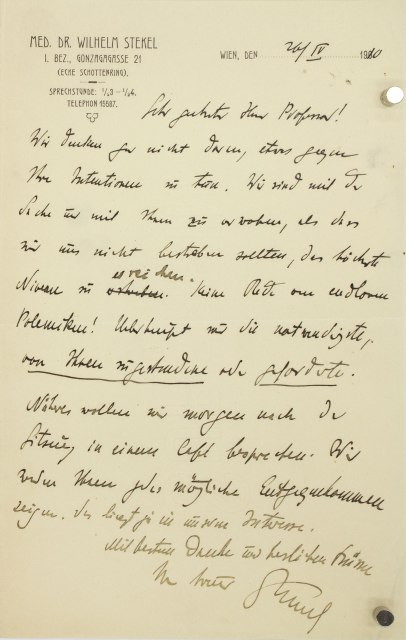 MED. DR. WILHELM STEKEL
I. BEZ., GONZAGAGASSE 21
(ECKE SCHOTTENRING).
SPRECHSTUNDE: 1/23–1/24.
TELEPHON 15587.
WIEN, DEN 20/IV 1910
Sehr geehrter Herr Professor!
Wir denken gar nicht daran, etwas gegen
Ihre Intentionen zu tun. Wir sind mit der
Sache und mit Ihnen zu verwoben, als dass
wir uns nicht bestreben sollten, das höchste
erreichen.
Niveau zu. Keine Rede von endlosen
Polemiken! Überhaupt nur die notwendigste,
von Ihnen zugestandene oder geforderte.
Näheres wollen wir morgen nach der
Sitzung in einem Café besprechen. Wir
werden Ihnen jedes mögliche Entgegenkommen
zeigen. Das liegt ja in unserem Interesse.
Mit bestem Danke und herzlichen Grüssen
Ihr Stekel